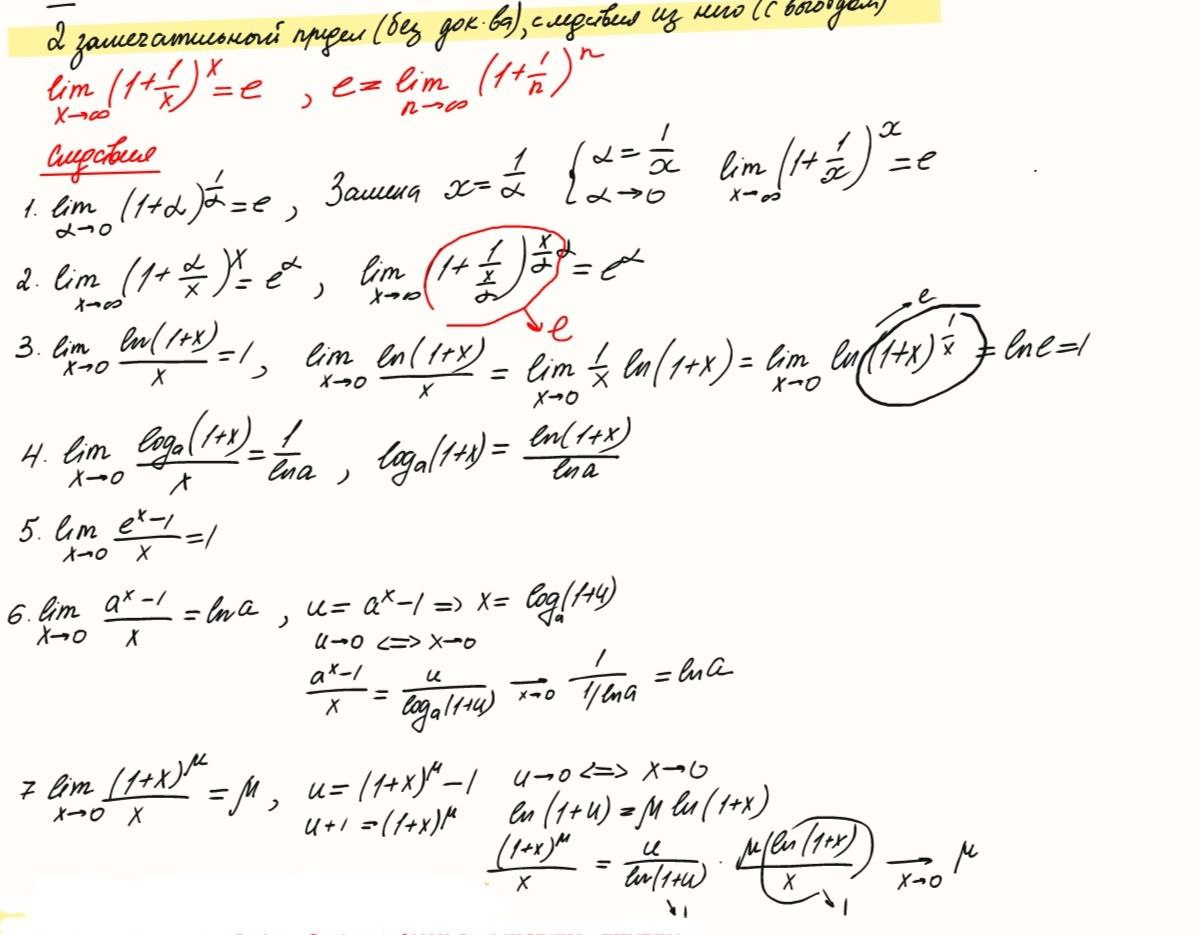 2 замечательный предел (без док-ва), следствия из него (с выводом)
lim x→∞ (1+1/x)^x = e , e = lim n→∞ (1+1/n)^n
Следствия
1. lim α→0 (1+α)^(1/α) = e , Замена x = 1/α { α = 1/x α→0 lim x→∞ (1+1/x)^x = e
2. lim x→∞ (1+α/x)^x = e^α , lim x→∞ (1+1/(x/α))^(x/α α) = e^α
→ e
3. lim x→0 ln(1+x)/x = 1 , lim x→0 ln(1+x)/x = lim x→0 1/x ln(1+x) = lim x→0 ln(1+x)^(1/x) = ln e = 1
→ e
4. lim x→0 log_a(1+x)/x = 1/ln a , log_a(1+x) = ln(1+x)/ln a
5. lim x→0 (e^x-1)/x = 1
6. lim x→0 (a^x-1)/x = ln a , u = a^x-1 => x = log_a(1+u)
u→0 <=> x→0
(a^x-1)/x = u/log_a(1+u) → x→0 1/(1/ln a) = ln a
7 lim x→0 (1+x)^μ/x = μ , u = (1+x)^μ-1 u→0 <=> x→0
u+1 = (1+x)^μ ln(1+u) = μ ln(1+x)
(1+x)^μ/x = u/ln(1+u) · μ(ln(1+x)/x) → x→0 μ
↘1 ↘1